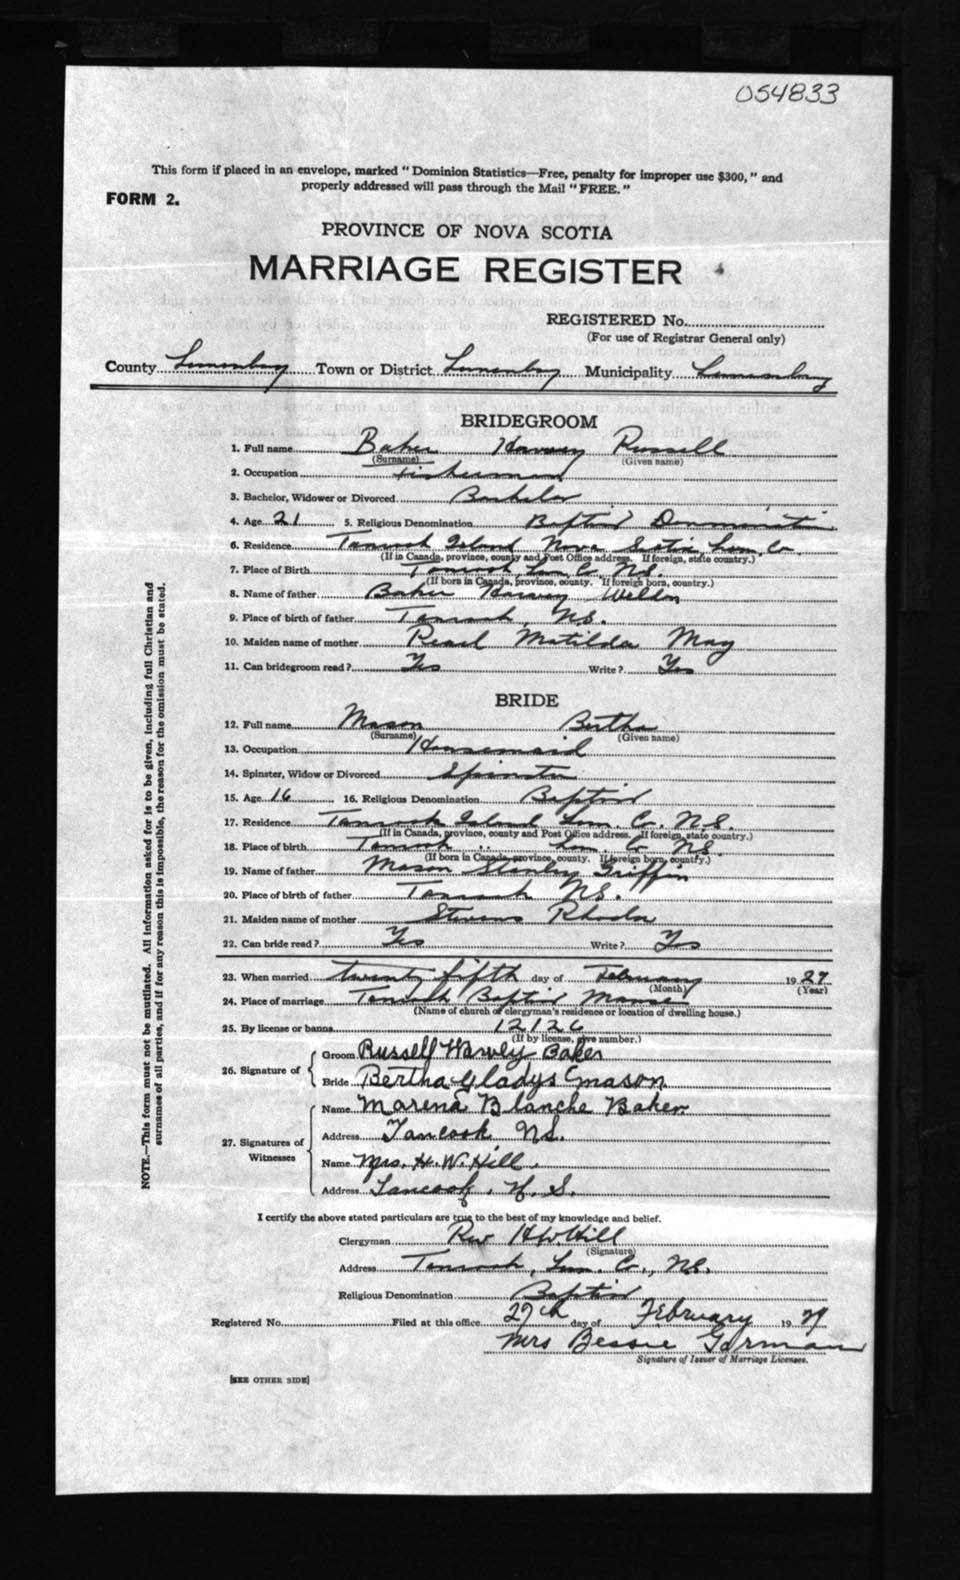 054833
This form if placed in an envelope, marked "Dominion Statistics—Free, penalty for improper use $300," and
properly addressed will pass through the Mail "FREE."
FORM 2.
PROVINCE OF NOVA SCOTIA
MARRIAGE REGISTER
REGISTERED No.
(For use of Registrar General only)
County Lunenburg Town or District Lunenburg Municipality Lunenburg
BRIDEGROOM
1. Full name Baker Harvey Russell
(Surname) (Given name)
2. Occupation Fisherman
3. Bachelor, Widower or Divorced Bachelor
4. Age 21 5. Religious Denomination Baptist Denomination
6. Residence Tancook Island Nova Scotia Lun. Co.
(If in Canada, province, county and Post Office address. If foreign, state country.)
7. Place of Birth Tancook Lun Co N.S.
(If born in Canada, province, county. If foreign born, country.)
8. Name of father Baker Harvey Weldon
9. Place of birth of father Tancook, N.S.
10. Maiden name of mother Pearl Matilda May
11. Can bridegroom read? Yes Write? Yes
BRIDE
12. Full name Mason Bertha
(Surname) (Given name)
13. Occupation Housemaid
14. Spinster, Widow or Divorced Spinster
15. Age 16 16. Religious Denomination Baptist
17. Residence Tancook Island Lun. Co. N.S.
(If in Canada, province, county and Post Office address. If foreign, state country.)
18. Place of birth Tancook .. Lun. Co N.S.
(If born in Canada, province, county. If foreign born, country.)
19. Name of father Mason Stanley Griffin
20. Place of birth of father Tancook N.S.
21. Maiden name of mother Stevens Rhoda
22. Can bride read? Yes Write? Yes
23. When married twenty fifth day of February 1929
(Month) (Year)
24. Place of marriage Tancook Baptist Manse
(Name of church or clergyman's residence or location of dwelling house.)
25. By license or banns 12126
(If by license, give number.)
26. Signature of Groom Russell Harvey Baker
Bride Bertha Gladys Mason
27. Signatures of Witnesses
Name Marena Blanche Baker
Address Tancook, N.S.
Name Mrs. H. W. Hill.
Address Tancook, N. S.
I certify the above stated particulars are true to the best of my knowledge and belief.
Clergyman Rev H.W. Hill
(Signature)
Address Tancook, Lun. Co., N.S.
Religious Denomination Baptist
Registered No. Filed at this office 27th day of February 1929
Mrs Bessie Gorman
Signature of Issuer of Marriage Licenses.
[SEE OTHER SIDE]
NOTE.—This form must not be mutilated. All information asked for is to be given, including full Christian and
surnames of all parties, and if for any reason this is impossible, the reason for the omission must be stated.